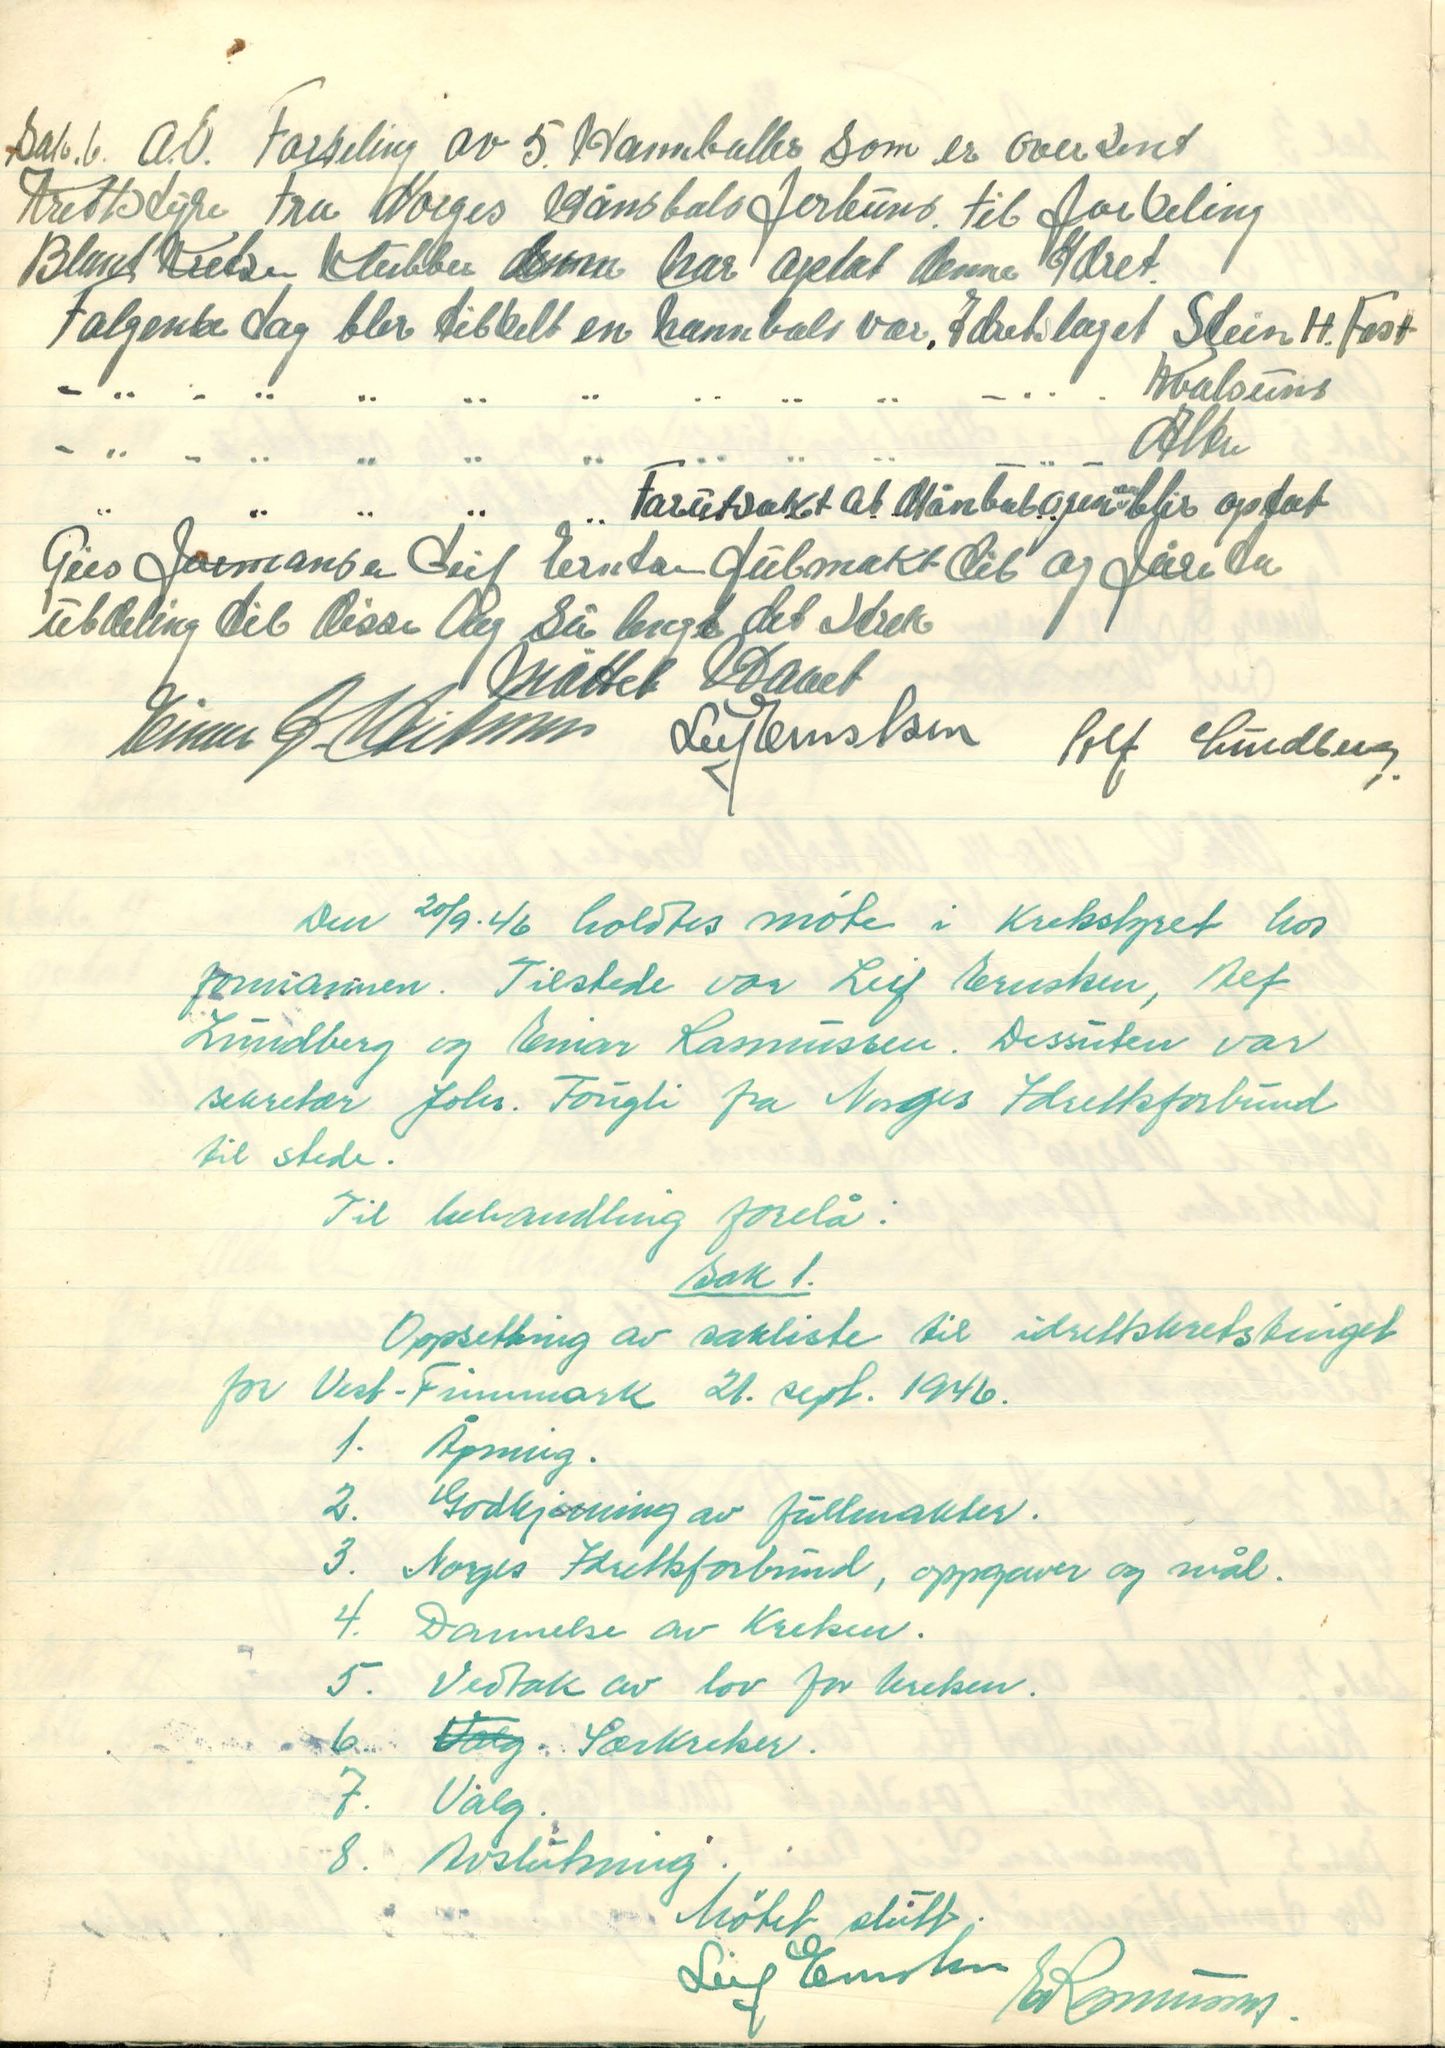 Sak. 6. A.O. Fordeling av 5. Hannballer som er oversent
Kretsstyre fra Norges Hånbals forbund. til fordeling
Blant Kretsen klubber som har optat denne Idret.
Følgende lag blir tildelt en hannbals vær. Idretslaget Stein H. Fest
- " - " " " " " " " - " " . Kvalsund
- " - " " " " " " " " Alta
" " " " " Forutsakt at Hånbal grenen blir optat
Gies formansen Leif Ernsten fulmakt til og føreta
utdeling til disse lag så lengt det strek
Møttet Hævet
Leif Ernstsen Alf Lundberg.
Den 20/9.46 holdtes möte i kretsstyret hos
formannen. Tilstede var Leif Ernstsen, Alf
Lundberg og Einar Rasmussen. Dessuten var
sekretær Johs. Tougli fra Norges Idrettsforbund
til stede.
Til behandling forelå:
Sak 1.
Oppsetting av sakliste til idrettskretstinget
for Vest-Finnmark 21. sept. 1946.
1. Åpning.
2. Godkjenning av fullmakter.
3. Norges Idrettsforbund, oppgaver og mål.
4. Dannelse av Kretsen.
5. Vedtak av lov for kretsen.
6. Valg. Særkretser.
7. Valg.
8. Avslutning.
Mötet slutt.
Leif Ernstsen E. Rasmussen.